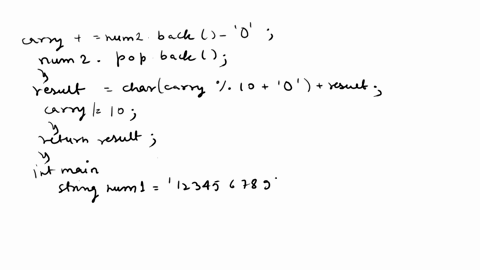 carry + = num2. back () - '0' ;
num2. pop back();
}
result = char(carry % 10 + '0') + result;
carry /= 10;
}
return result;
}
int main
string num1 = '12345 6789'